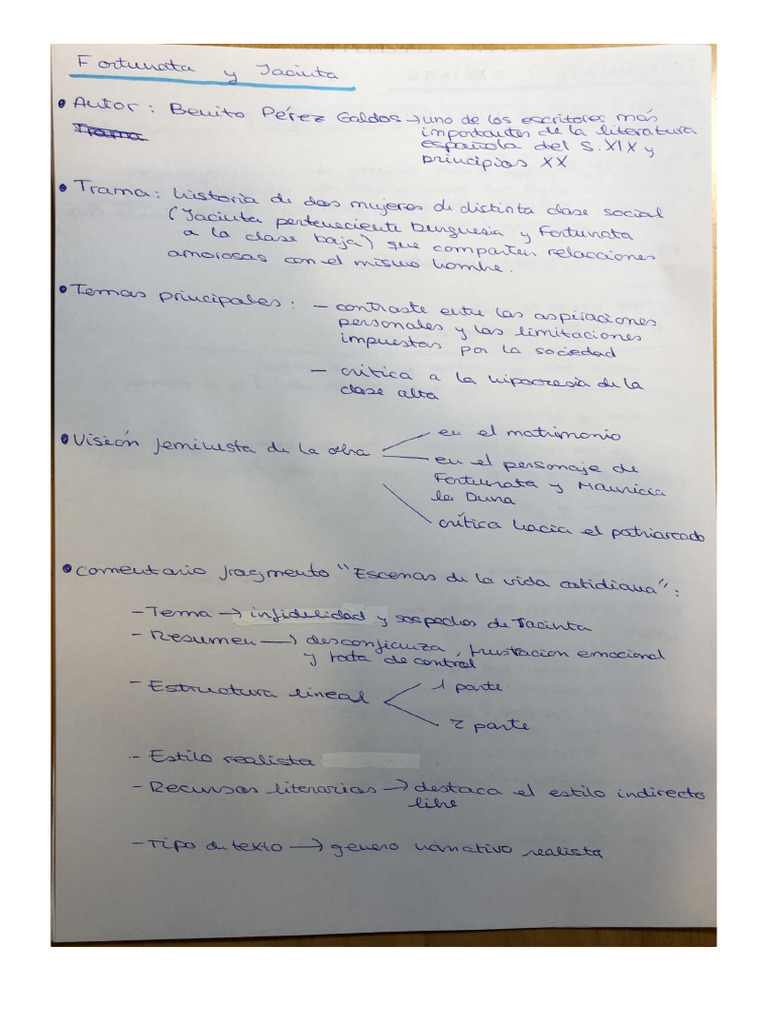 Fortunata y Jacinta
• Autor : Benito Pérez Galdos → uno de los escritores más
importantes de la literatura
española del S. XIX y
principios XX
Trama
• Trama : historia de dos mujeres de distinta clase social
(Jacinta perteneciente burguesia y Fortunata
a la clase baja) que comparten relacciones
amorosas con el mismo hombre.
• Temas principales : – contraste entre las aspiraciones
personales y las limitaciones
impuestas por la sociedad
– critica a la hipocresia de la
clase alta
• Visión feminista de la obra
en el matrimonio
en el personaje de
Fortunata y Mauricia
la Duna
crítica hacia el patriarcado
• Comentario fragmento "Escenas de la vida cotidiana" :
– Tema → infidelidad y sospechas de Jacinta
– Resumen → desconfianza, frustracion emocional
y falta de control
– Estructura lineal
1 parte
2 parte
– Estilo realista
– Recursos literarios → destaca el estilo indirecto
libre
– Tipo de texto → genero narrativo realista